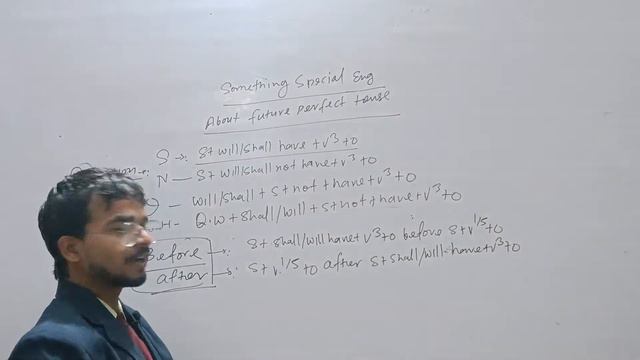 Something Special Eng
About future perfect tense
S → S+ will/shall have + v³ + o
N — S+ will/shall not have + v³ + o
— will/shall + s + not + have + v³ + o
H - Q.w + shall/will + s + not + have + v³ + o
Before → : S+ shall/will have + v³ + o before S + v^1/5 + o
after → : S + v^1/5 + o after S + shall/will have + v³ + o